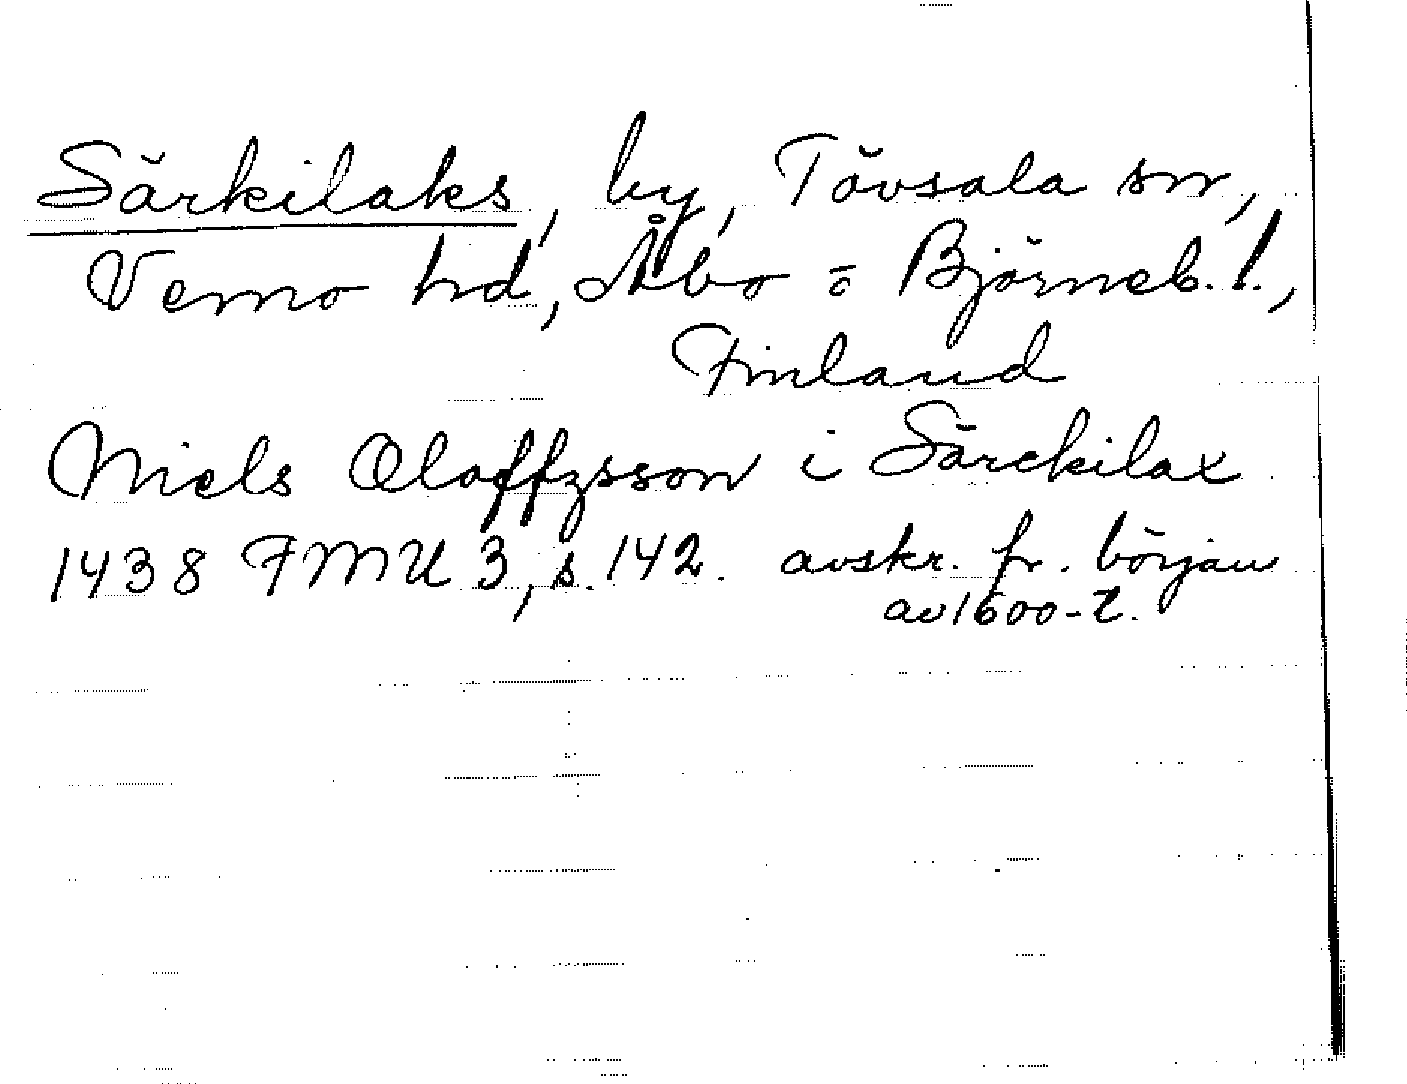 Särkilaks, by, Tövsala sn,
Vemo hd, Åbo o Björneb. l.,
Finland
Niels Olaffzsson i Särckilax
1438 FMU 3, s. 142. avskr. fr. början
av 1600-t.